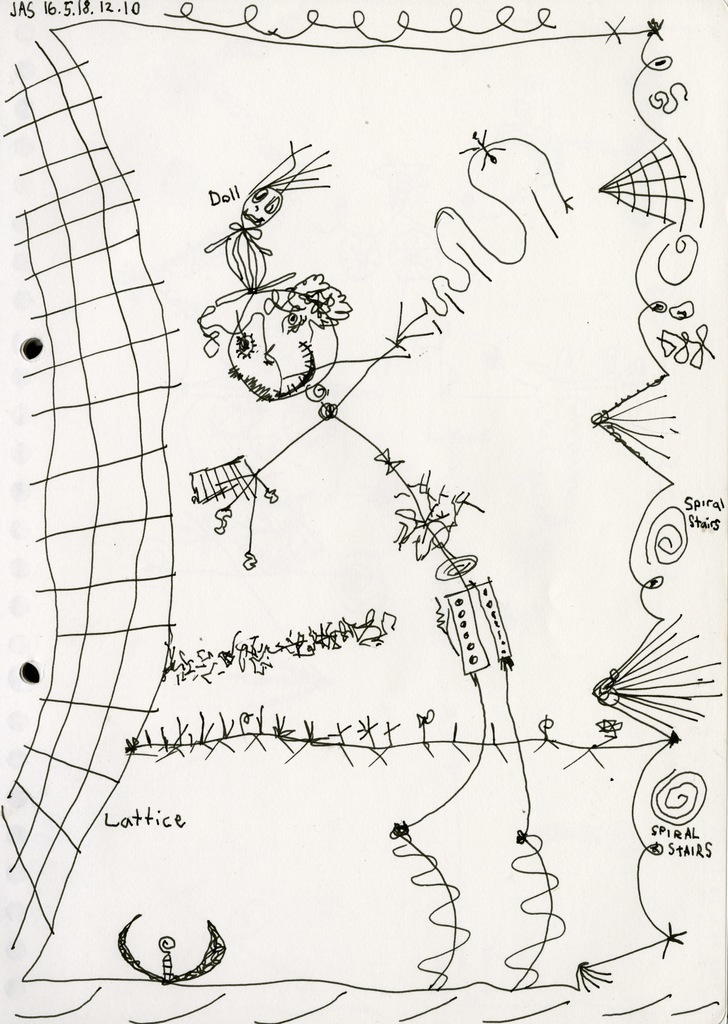 JAS 16.5.18.12.10
Doll
Spiral
Stairs
Lattice
SPIRAL
STAIRS